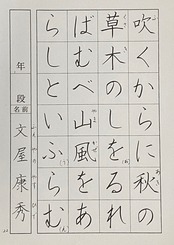 吹くからに秋の
草木のしを(お)るれ
ばむべ山風をあ
らしといふ(う)らむ(ん)
年 段 名前 文屋康秀